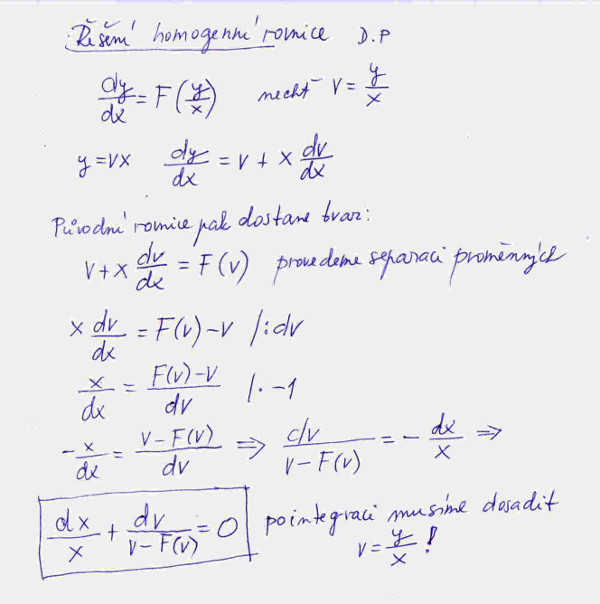 Řešení homogenní rovnice D.P
dy/dx = F(y/x) nechť v = y/x
y = vx dy/dx = v + x dv/dx
Původní rovnice pak dostane tvar:
v + x dv/dx = F(v) provedeme separaci proměnných
x dv/dx = F(v) - v /: dv
x/dx = F(v) - v / dv /. -1
- x/dx = v - F(v) / dv ⇒ dv / v - F(v) = - dx/x ⇒
dx/x + dv / v - F(v) = 0 po integraci musíme dosadit
v = y/x !